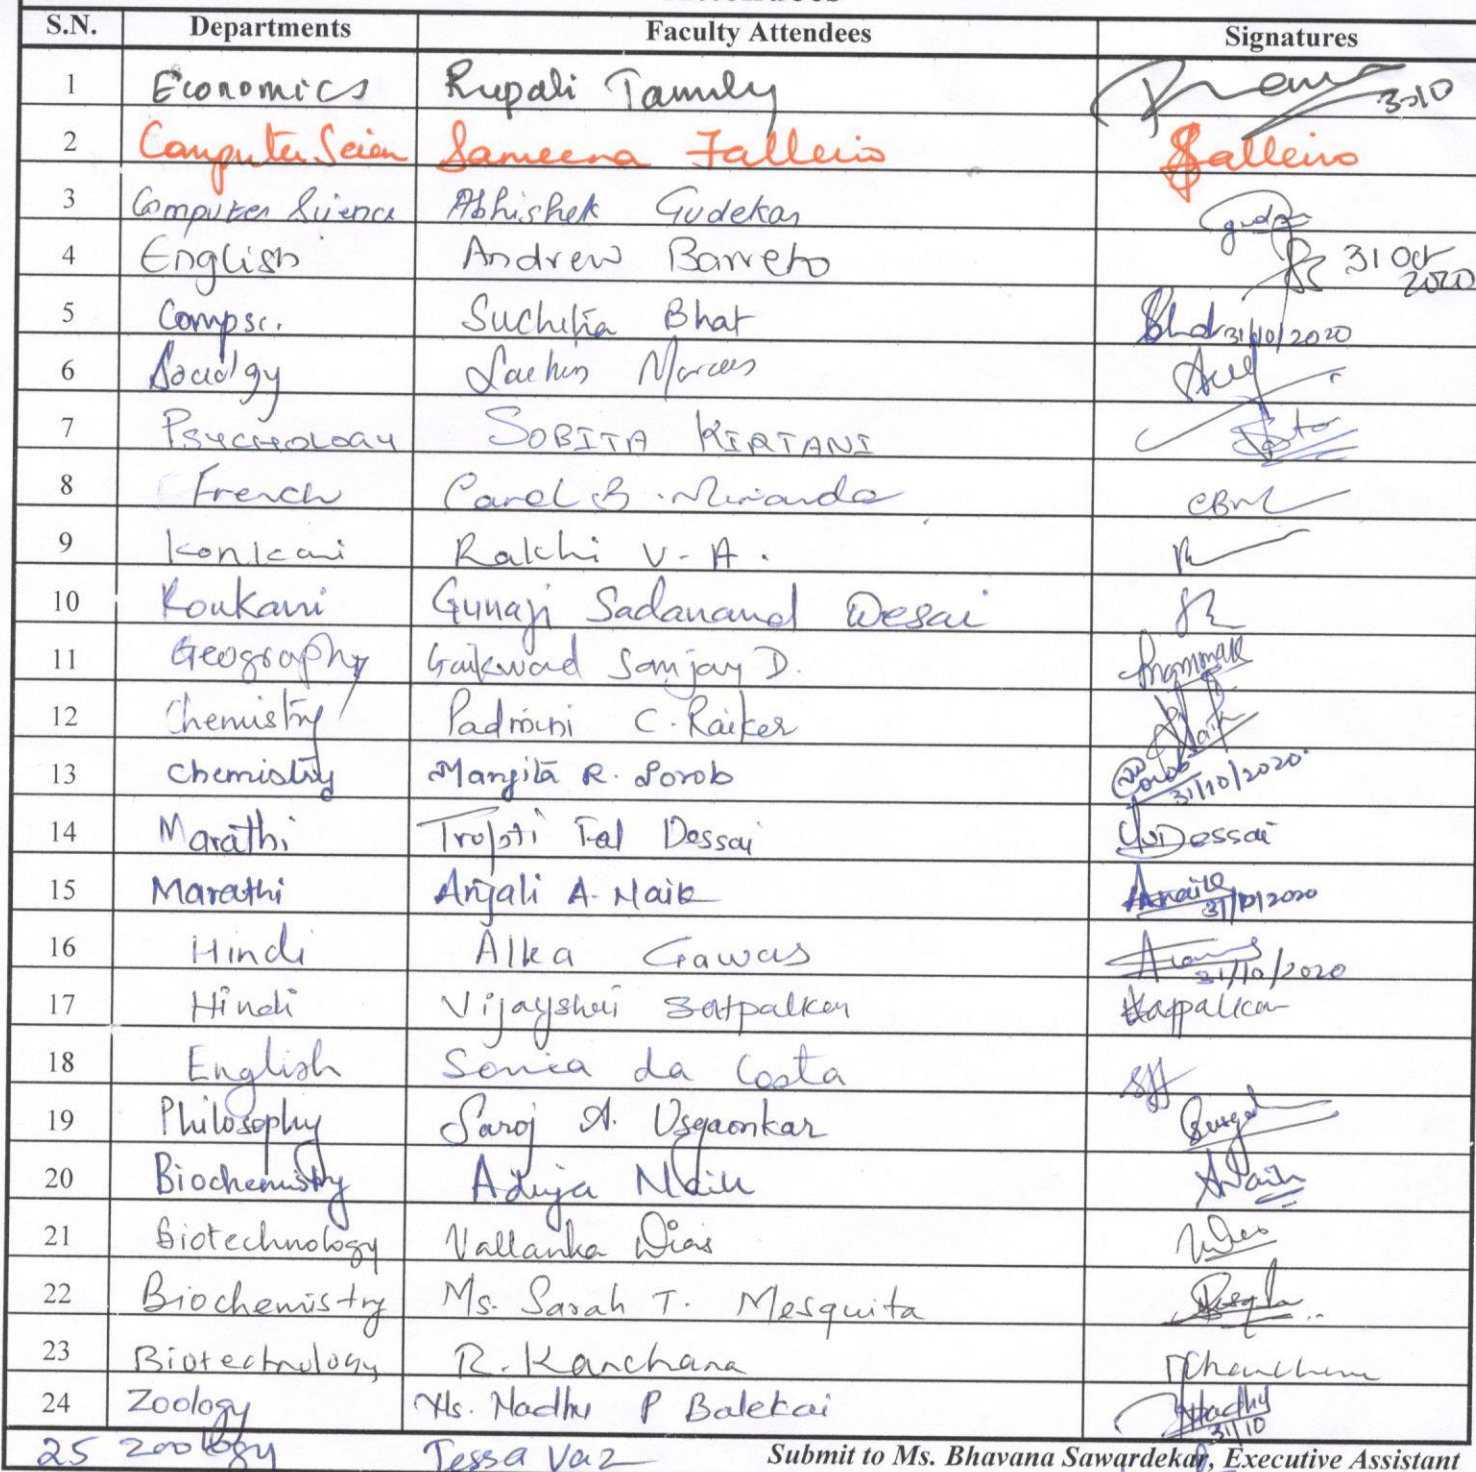 S.N. Departments Faculty Attendees Signatures
1 Economics Rupali Tamuly 3-10
2 Computer Scien Sameena Falleiro Falleiro
3 Computer Science Abhishek Gudekar
4 English Andrew Barreto 31 Oct 2020
5 Compsc. Suchitra Bhat 31/10/2020
6 Sociology Sachin Moraes
7 PSYCHOLOGY SOBITA KIRTANI
8 French Carol B. Miranda CBM
9 Konkani Rakhi V-A.
10 Konkani Gunaji Sadanand Desai
11 Geography Gaikwad Sanjay D.
12 Chemistry Padmini C. Raiker
13 chemistry Mangita R. Porob Porob 31/10/2020
14 Marathi Trupti Fal Dessai Dessai
15 Marathi Anjali A. Naik Anaik 31/10/2020
16 Hindi Alka Gawas 31/10/2020
17 Hindi Vijayshri Satpalkar
18 English Sonia da Costa
19 Philosophy Saroj A. Usgaonkar
20 Biochemistry Aduja Naik
21 Biotechnology Vallanka Dias
22 Biochemistry Ms. Sarah T. Mesquita
23 Biotechnology R. Kanchana
24 Zoology Ms. Madhu P Balekai Madhu 31/10
25 Zoology Tessa Vaz Submit to Ms. Bhavana Sawardekar, Executive Assistant